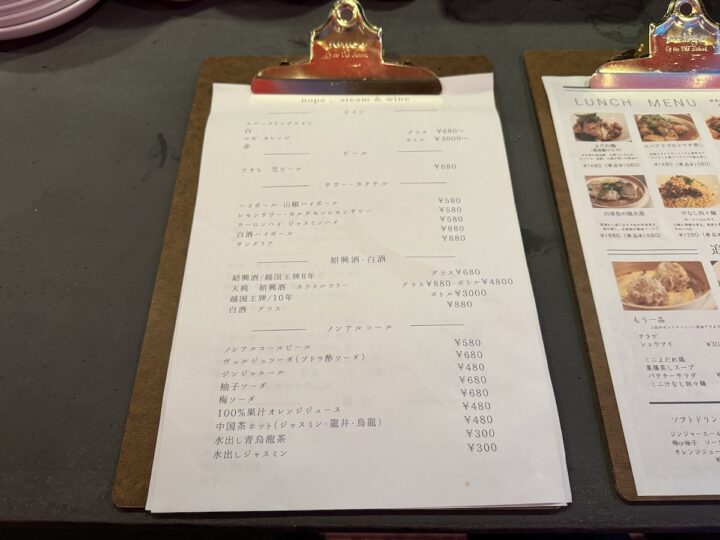 nope: steam & wine
ワイン
スパークリングワイン
白
ロゼ・オレンジ
赤
グラス ¥680~
ボトル ¥3000~
ビール
アサヒ 生ビール ¥680
サワー・カクテル
ハイボール・山椒ハイボール ¥580
レモンサワー・カルダモンレモンサワー ¥580
ウーロンハイ・ジャスミンハイ ¥580
白酒ハイボール ¥880
サングリア ¥880
紹興酒・白酒
紹興酒/越国王牌8年 グラス¥680
天純 紹興酒 カラメルフリー グラス¥880・ボトル¥4800
越国王牌/10年 ボトル¥3000
白酒 グラス ¥880
ノンアルコール
ノンアルコールビール ¥580
ヴェルジュソーダ(ブドウ酢ソーダ) ¥680
ジンジャエール ¥480
柚子ソーダ ¥680
梅ソーダ ¥680
100%果汁オレンジジュース ¥480
中国茶ホット(ジャスミン・龍井・烏龍) ¥480
水出し青烏龍茶 ¥300
水出しジャスミン ¥300
LUNCH MENU
よだれ鶏
¥1480(単品¥1080)
スペアリブのトウチ蒸し
白身魚の強火蒸
¥1880(単品¥1480)
汁なし担々麺
¥1280
追
もう一品
クラゲ
シュウマイ
ミニよだれ鶏
薬膳蒸しスープ
パクチーサラダ
ミニ汁なし担々麺
ソフトドリン
ジンジャーエール
梅or柚子 ソーダ
オレンジジュー